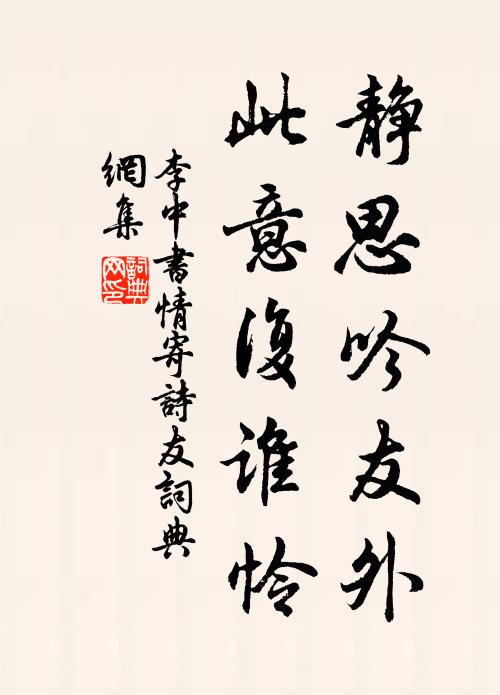 静思吟友外
此意復谁怜
李中書情寄詩友詞典
網集
詞典
网印